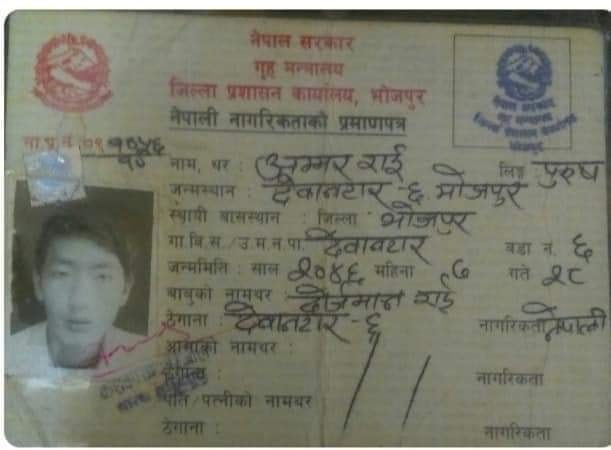 नेपाल सरकार
गृह मन्त्रालय
जिल्ला प्रशासन कार्यालय, भोजपुर
नेपाली नागरिकताको प्रमाणपत्र
नाम, थर : राई लिङ्ग : पुरुष
जन्मस्थान : देवानटार - ६ भोजपुर
स्थायी बासस्थान : जिल्ला : भोजपुर
गा.वि.स./उ.म.न.पा. देवानटार वडा नं. ६
जन्ममिति : साल २०४६ महिना ७ गते २८
बाबुको नामथर राई
ठेगाना : देवानटार - ६ नागरिकता नेपाली
आमाको नामथर :
ठेगाना : नागरिकता
पति/पत्नीको नामथर
ठेगाना : नागरिकता